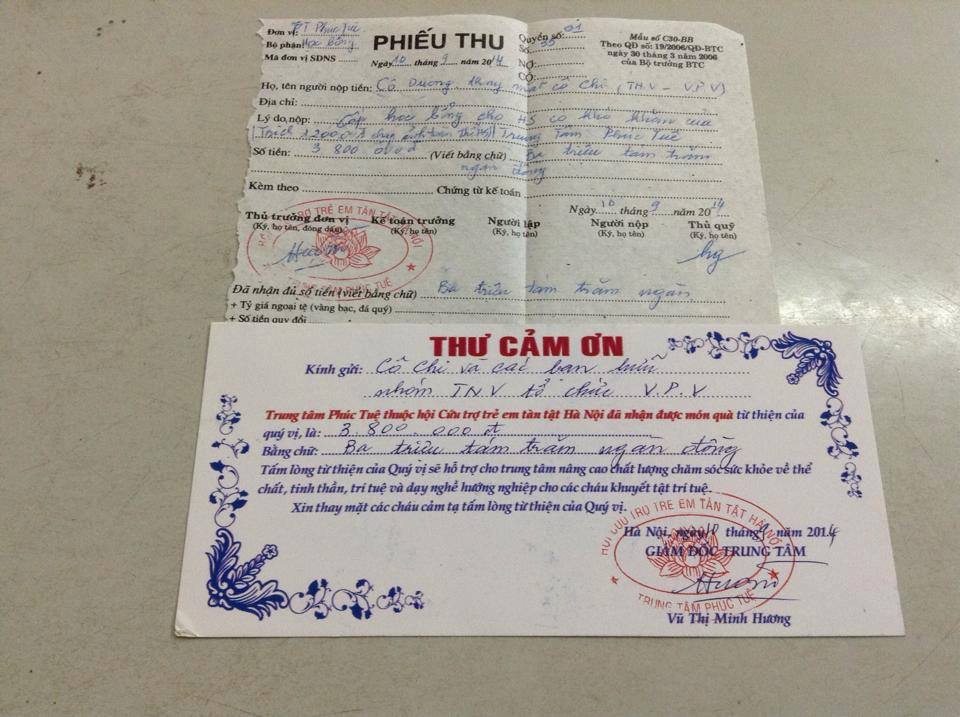 Đơn vị: TT Phúc Tuệ
Bộ phận: Học bổng
Mã đơn vị SDNS
PHIẾU THU
Ngày 10 tháng 9 năm 2014
Quyển số: 01
Số: 35
NỢ:
CÓ:
Mẫu số C30-BB
Theo QĐ số: 19/2006/QĐ-BTC
ngày 30 tháng 3 năm 2006
của Bộ trưởng BTC
Họ, tên người nộp tiền: Cô Dương thay mặt cô Chi (TNV - V.P.V)
Địa chỉ:
Lý do, nộp: Cấp học bổng cho HS có khó khăn của
Trung Tâm Phúc Tuệ
Số tiền: 3 800.000đ (Viết bằng chữ) Ba triệu tám trăm
ngàn đồng
Kèm theo Chứng từ kế toán
Ngày 10 tháng 9 năm 2014
Thủ trưởng đơn vị Kế toán trưởng Người lập Người nộp Thủ quỹ
(Ký, họ tên, đóng dấu) (Ký, họ tên) (Ký, họ tên) (Ký, họ tên) (Ký, họ tên)
TRỢ TRẺ EM TÀN TẬT HÀ NỘI
TRUNG TÂM PHÚC TUỆ
Đã nhận đủ số tiền (viết bằng chữ) Ba triệu tám trăm ngàn
+ Tỷ giá ngoại tệ (vàng bạc, đá quý)
+ Số tiền quy đổi
THƯ CẢM ƠN
Kính gửi: Cô Chi và các bạn hữu
nhóm TNV tổ chức V.P.V
Trung tâm Phúc Tuệ thuộc hội Cứu trợ trẻ em tàn tật Hà Nội đã nhận được món quà từ thiện của
quý vị, là: 3.800.000 đ
Bằng chữ: Ba triệu tám trăm ngàn đồng
Tấm lòng từ thiện của Quý vị sẽ hỗ trợ cho trung tâm nâng cao chất lượng chăm sóc sức khỏe về thể
chất, tinh thần, trí tuệ và dạy nghề hướng nghiệp cho các cháu khuyết tật trí tuệ.
Xin thay mặt các cháu cảm tạ tấm lòng từ thiện của Quý vị.
Hà Nội, ngày 10 tháng 9 năm 2014
GIÁM ĐỐC TRUNG TÂM
HỘI CỨU TRỢ TRẺ EM TÀN TẬT HÀ NỘI
TRUNG TÂM PHÚC TUỆ
Vũ Thị Minh Hương